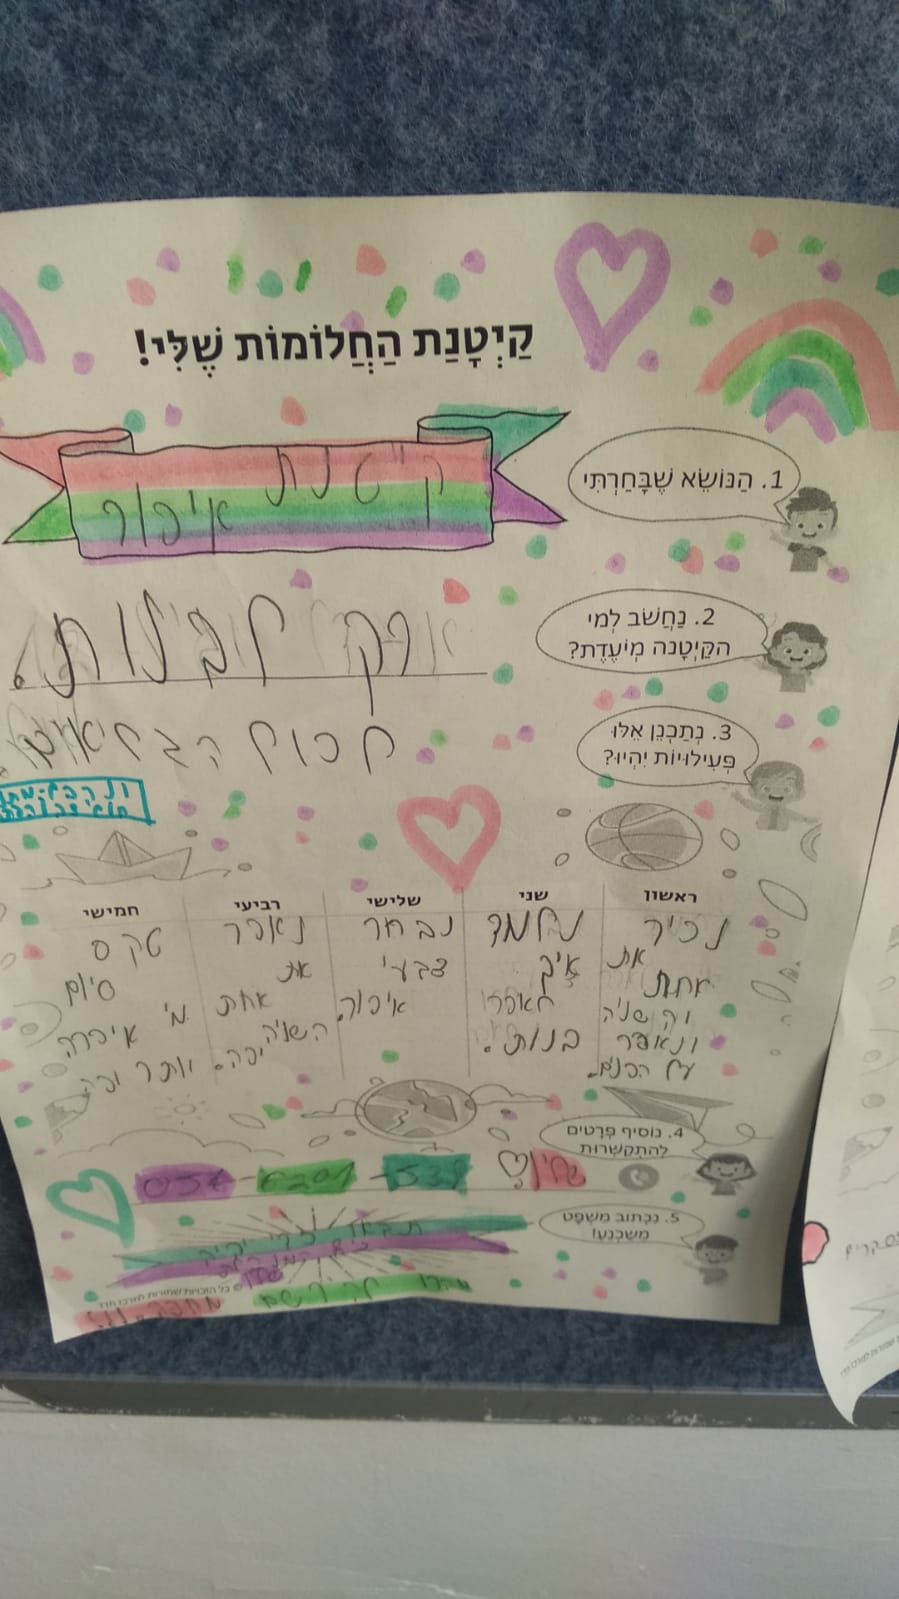 קַיְטָנַת הַחֲלוֹמוֹת שֶׁלִּי!
1. הַנּוֹשֵׂא שֶׁבָּחַרְתִּי
קייטנת
איפור
2. נַחֲשֹׁב לְמִי
הקַּיְטָנה מְיֹעֶדֶת?
רק לבנות.
3. נְתַכְנֵן אֵלּוּ
פְּעִילוּיוֹת יִהְיוּ?
לכול הגילאים.
ראשון
נכיר
את
אחת
והשניה
ונאפר
על הפנים.
שני
נלמד
איך
לאפר
בנות.
שלישי
נבחר
צבעי
איפור.
רביעי
נאפר
את
אחת
השניה
יפה.
חמישי
טקס
סיום
מי איפרה
יותר יפה
4. נוֹסִיף פְּרָטִים
לְהִתְקַשְּׁרוּת
5. נִכְתּוֹב מִשְׁפָּט
מְשַׁכְנֵעַ!